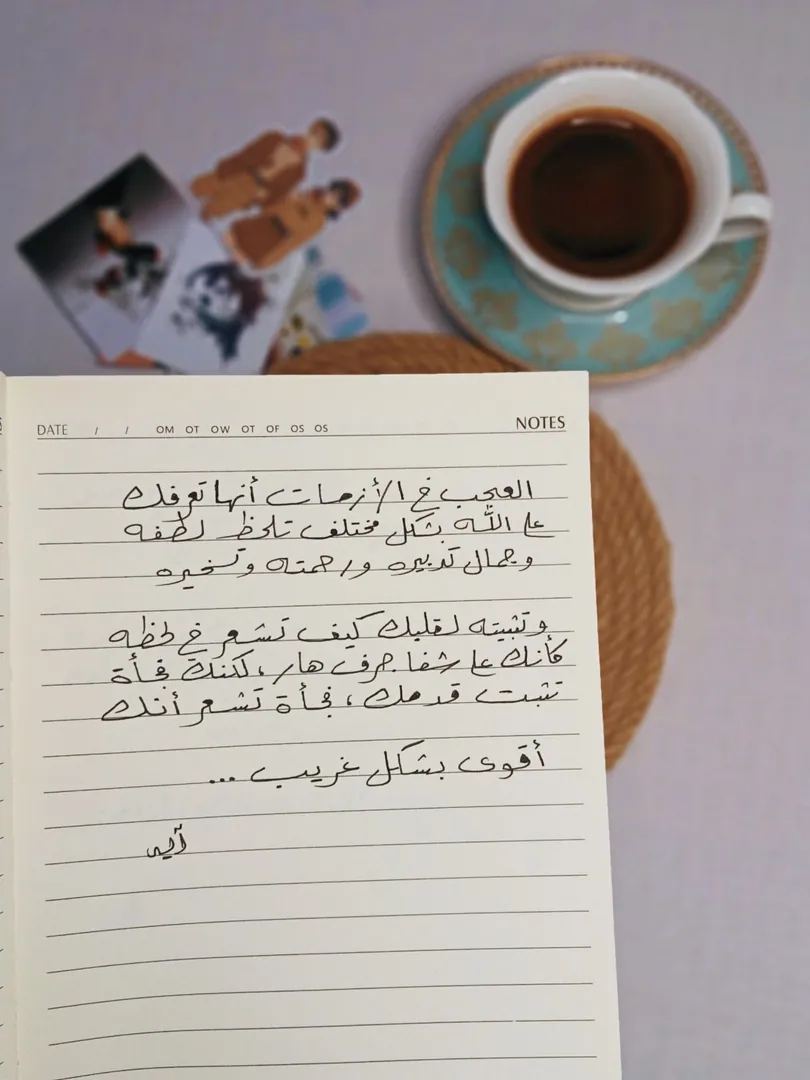 DATE / / OM OT OW OT OF OS OS NOTES
العجيب في الأزمات أنها تعرفك
على الله بشكل مختلف تلحظ لطفه
وجمال تدبيره ورحمته وتسخيره
وتثبيته لقلبك كيف تشعر في لحظه
كأنك على شفا جرف هار، لكنك فجأة
تثبت قدمك، فجأة تشعر أنك
أقوى بشكل غريب ...